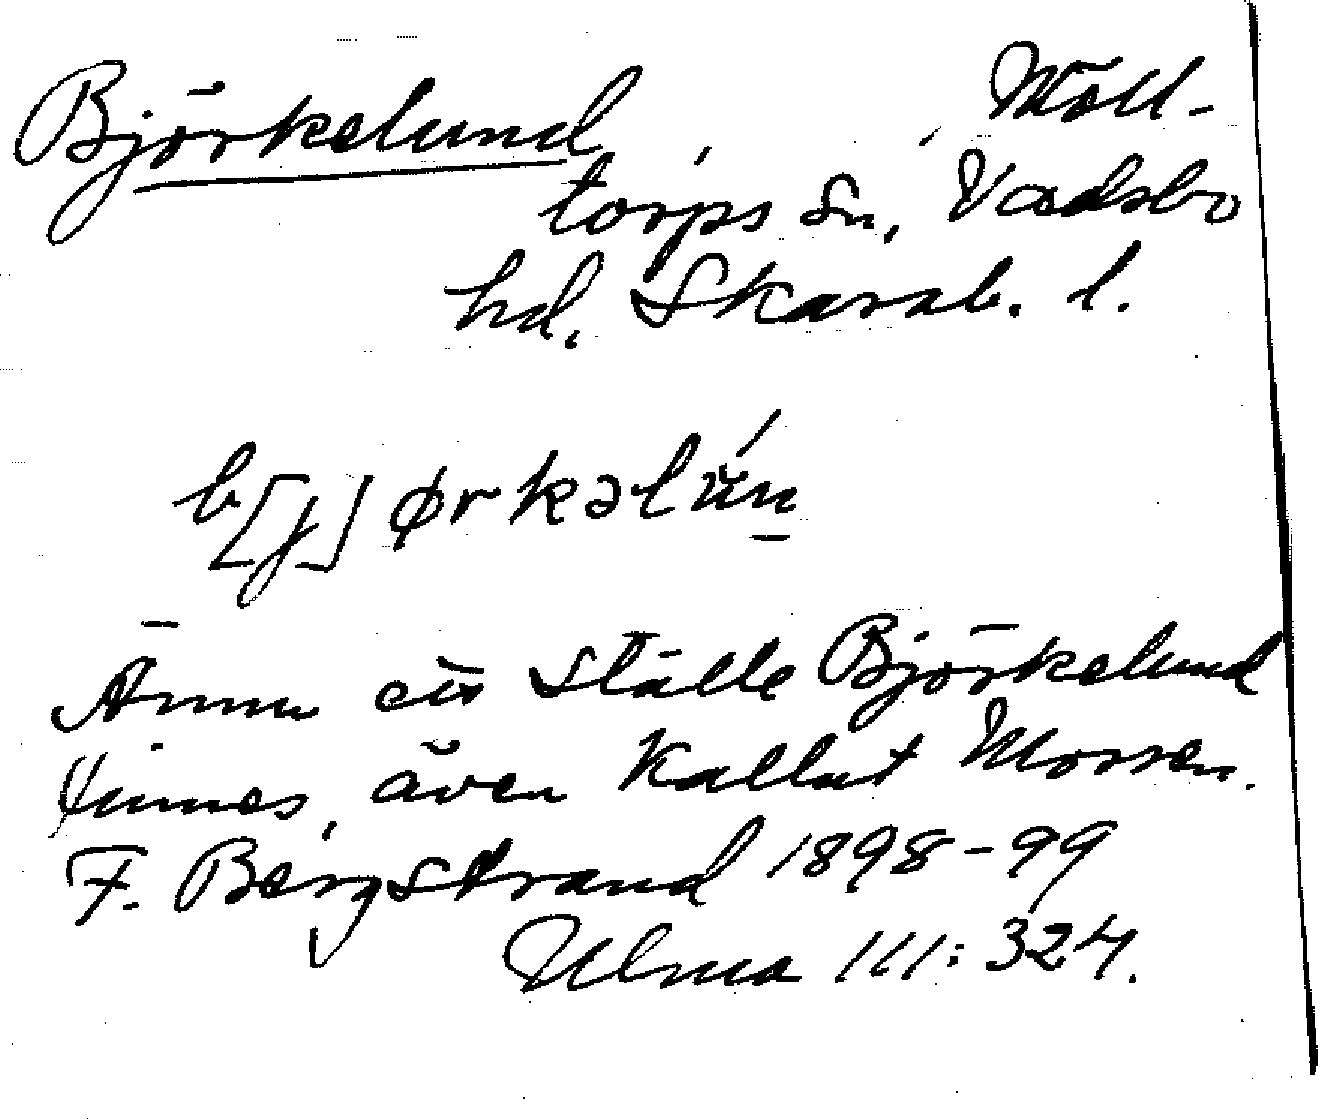 Björkelund, Möll-
torps sn, Vadsbo
hd. Skarab. l.
b[j]ørkəlún
Ännu ett ställe Björkelund
finnes, även kallat Mossen.
F. Bergstrand 1898-99
Ulma 111:324.